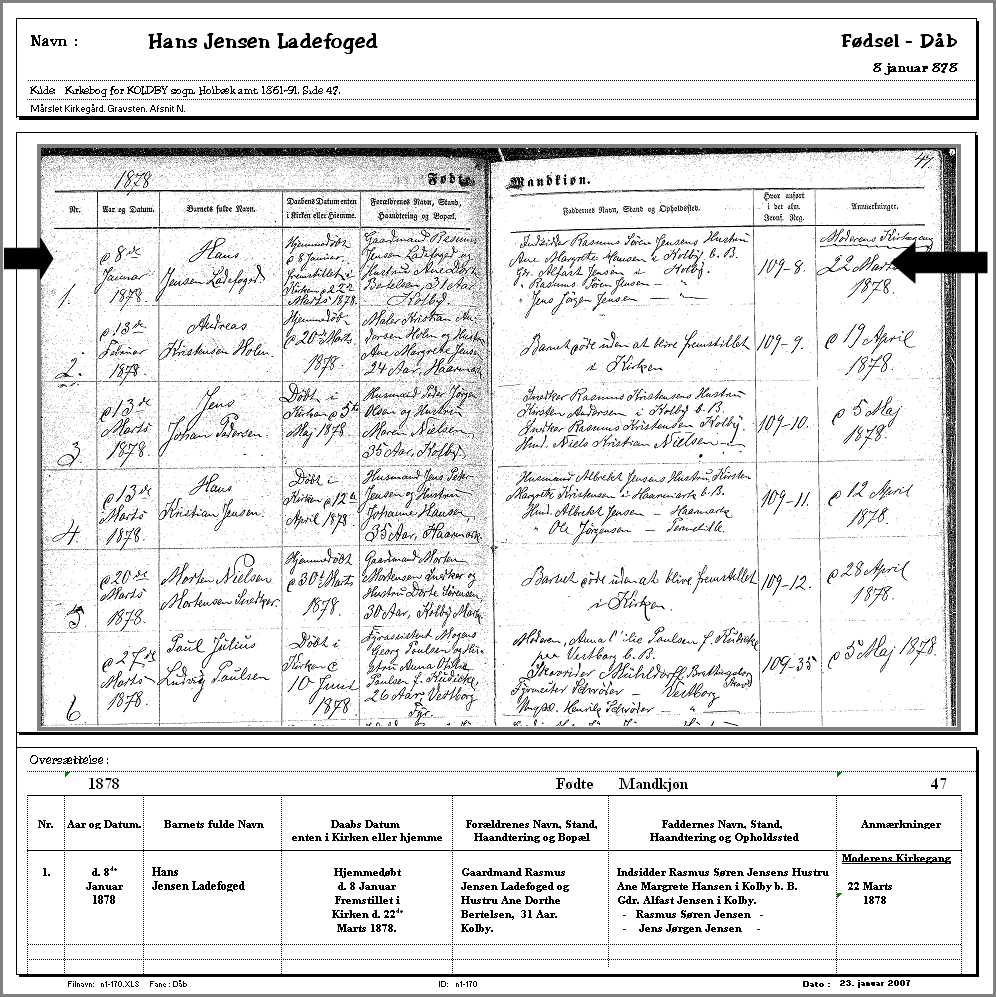 Navn : Hans Jensen Ladefoged Fødsel - Dåb
8 januar 878
Kilde: Kirkebog for KOLDBY sogn. Holbæk amt. 1861-91. Side 47.
Mårslet Kirkegård. Gravsten. Afsnit N.
47.
1878 Fødte Mandkiøn.
Nr. Aar og Datum. Barnets fulde Navn. Daabens Datum enten i Kirken eller Hjemme. Forældrenes Navn, Stand, Haandtering og Bopæl. Faddernes Navn, Stand og Opholdssted. Hvor anført i det alm. Jevnf. Reg. Anmærkninger.
Moderens Kirkegang
1. d 8de Januar 1878. Hans Jensen Ladefoged. Hjemmedøbt d 8 Januar. Fremstillet i Kirken d 22de Marts 1878. Gaardmand Rasmus Jensen Ladefoged og Hustru Ane Dorthe Bertelsen, 31 Aar. Kolby. Indsidder Rasmus Søren Jensens Hustru Ane Margrete Hansen i Kolby b. B. Gdr. Alfast Jensen i Kolby. " Rasmus Søren Jensen - " " Jens Jørgen Jensen - " 109-8. 22 Marts 1878.
2. d 13de Februar 1878. Andreas Kristensen Holm. Hjemmedøbt d 20de Marts. 1878. Maler Kristian Andersen Holm og Hustru Ane Margrete Jensen 24 Aar, Haarmark Barnet døde uden at blive fremstillet i Kirken 109-9. d 19 April 1878.
3 d 13de Marts 1878. Jens Johan Pedersen. Døbt i Kirken d 5te Maj 1878. Husmand Peder Jørgen Olsen og Hustru Maren Nielsen, 35 Aar, Kolby. Snedker Rasmus Kristensens Hustru Kirsten Andersen i Kolby b. B. Snedker Rasmus Kristensen Kolby. Husmd. Niels Kristian Nielsen - " 109-10. d 5 Maj 1878.
4. d 13de Marts 1878. Hans Kristian Jensen. Døbt i Kirken d 12te April 1878. Husmand Jens Peter Jensen og Hustru Johanne Hansen, 35 Aar, Haarmark Husmand Albrekt Jensens Hustru Kirsten Margrete Kristensen i Haarmark b. B. Husmd. Albrekt Jensen - Haarmark " Ole Jørgensen - 109-11. d 12 April 1878.
5 d 20de Marts 1878. Morten Nielsen Mortensen Snedker. Hjemmedøbt d 30te Marts 1878. Gaardmand Morten Mortensen Snedker og Hustru Dorte Sørensen, 30 Aar, Kolby Mark Barnet døde uden at blive fremstillet i Kirken. 109-12. d 28 April 1878.
6 d 27de Marts 1878. Paul Julius Ludvig Paulsen Døbt i Kirken d 10 Juni 1878 Fyrassistent Mogens Georg Paulsen og Hustru Anna Paulsen f. 26 Aar, Vestborg Fyr. Moderen, Anna Paulsen f. paa Vestborg b. B. Mühldorff Fyrmester Schrøder - Vestborg Henrik Schrøder - " 109-35 d 5 Maj 1878
Oversættelse :
1878 Fødte Mandkjøn 47
Nr. Aar og Datum. Barnets fulde Navn Daabs Datum enten i Kirken eller hjemme Forældrenes Navn, Stand, Haandtering og Bopæl Faddernes Navn, Stand, Haandtering og Opholdssted Anmærkninger
Moderens Kirkegang
1. d. 8de Hans Hjemmedøbt Gaardmand Rasmus Indsidder Rasmus Søren Jensens Hustru
Januar Jensen Ladefoged d. 8 Januar Jensen Ladefoged og Ane Margrete Hansen i Kolby b. B. 22 Marts
1878 Fremstillet i Hustru Ane Dorthe Gdr. Alfast Jensen i Kolby. 1878
Kirken d. 22de Bertelsen, 31 Aar. - Rasmus Søren Jensen -
Marts 1878. Kolby. - Jens Jørgen Jensen -
Filnavn: n1-170.XLS Fane : Dåb ID: n1-170 Dato : 23. januar 2007